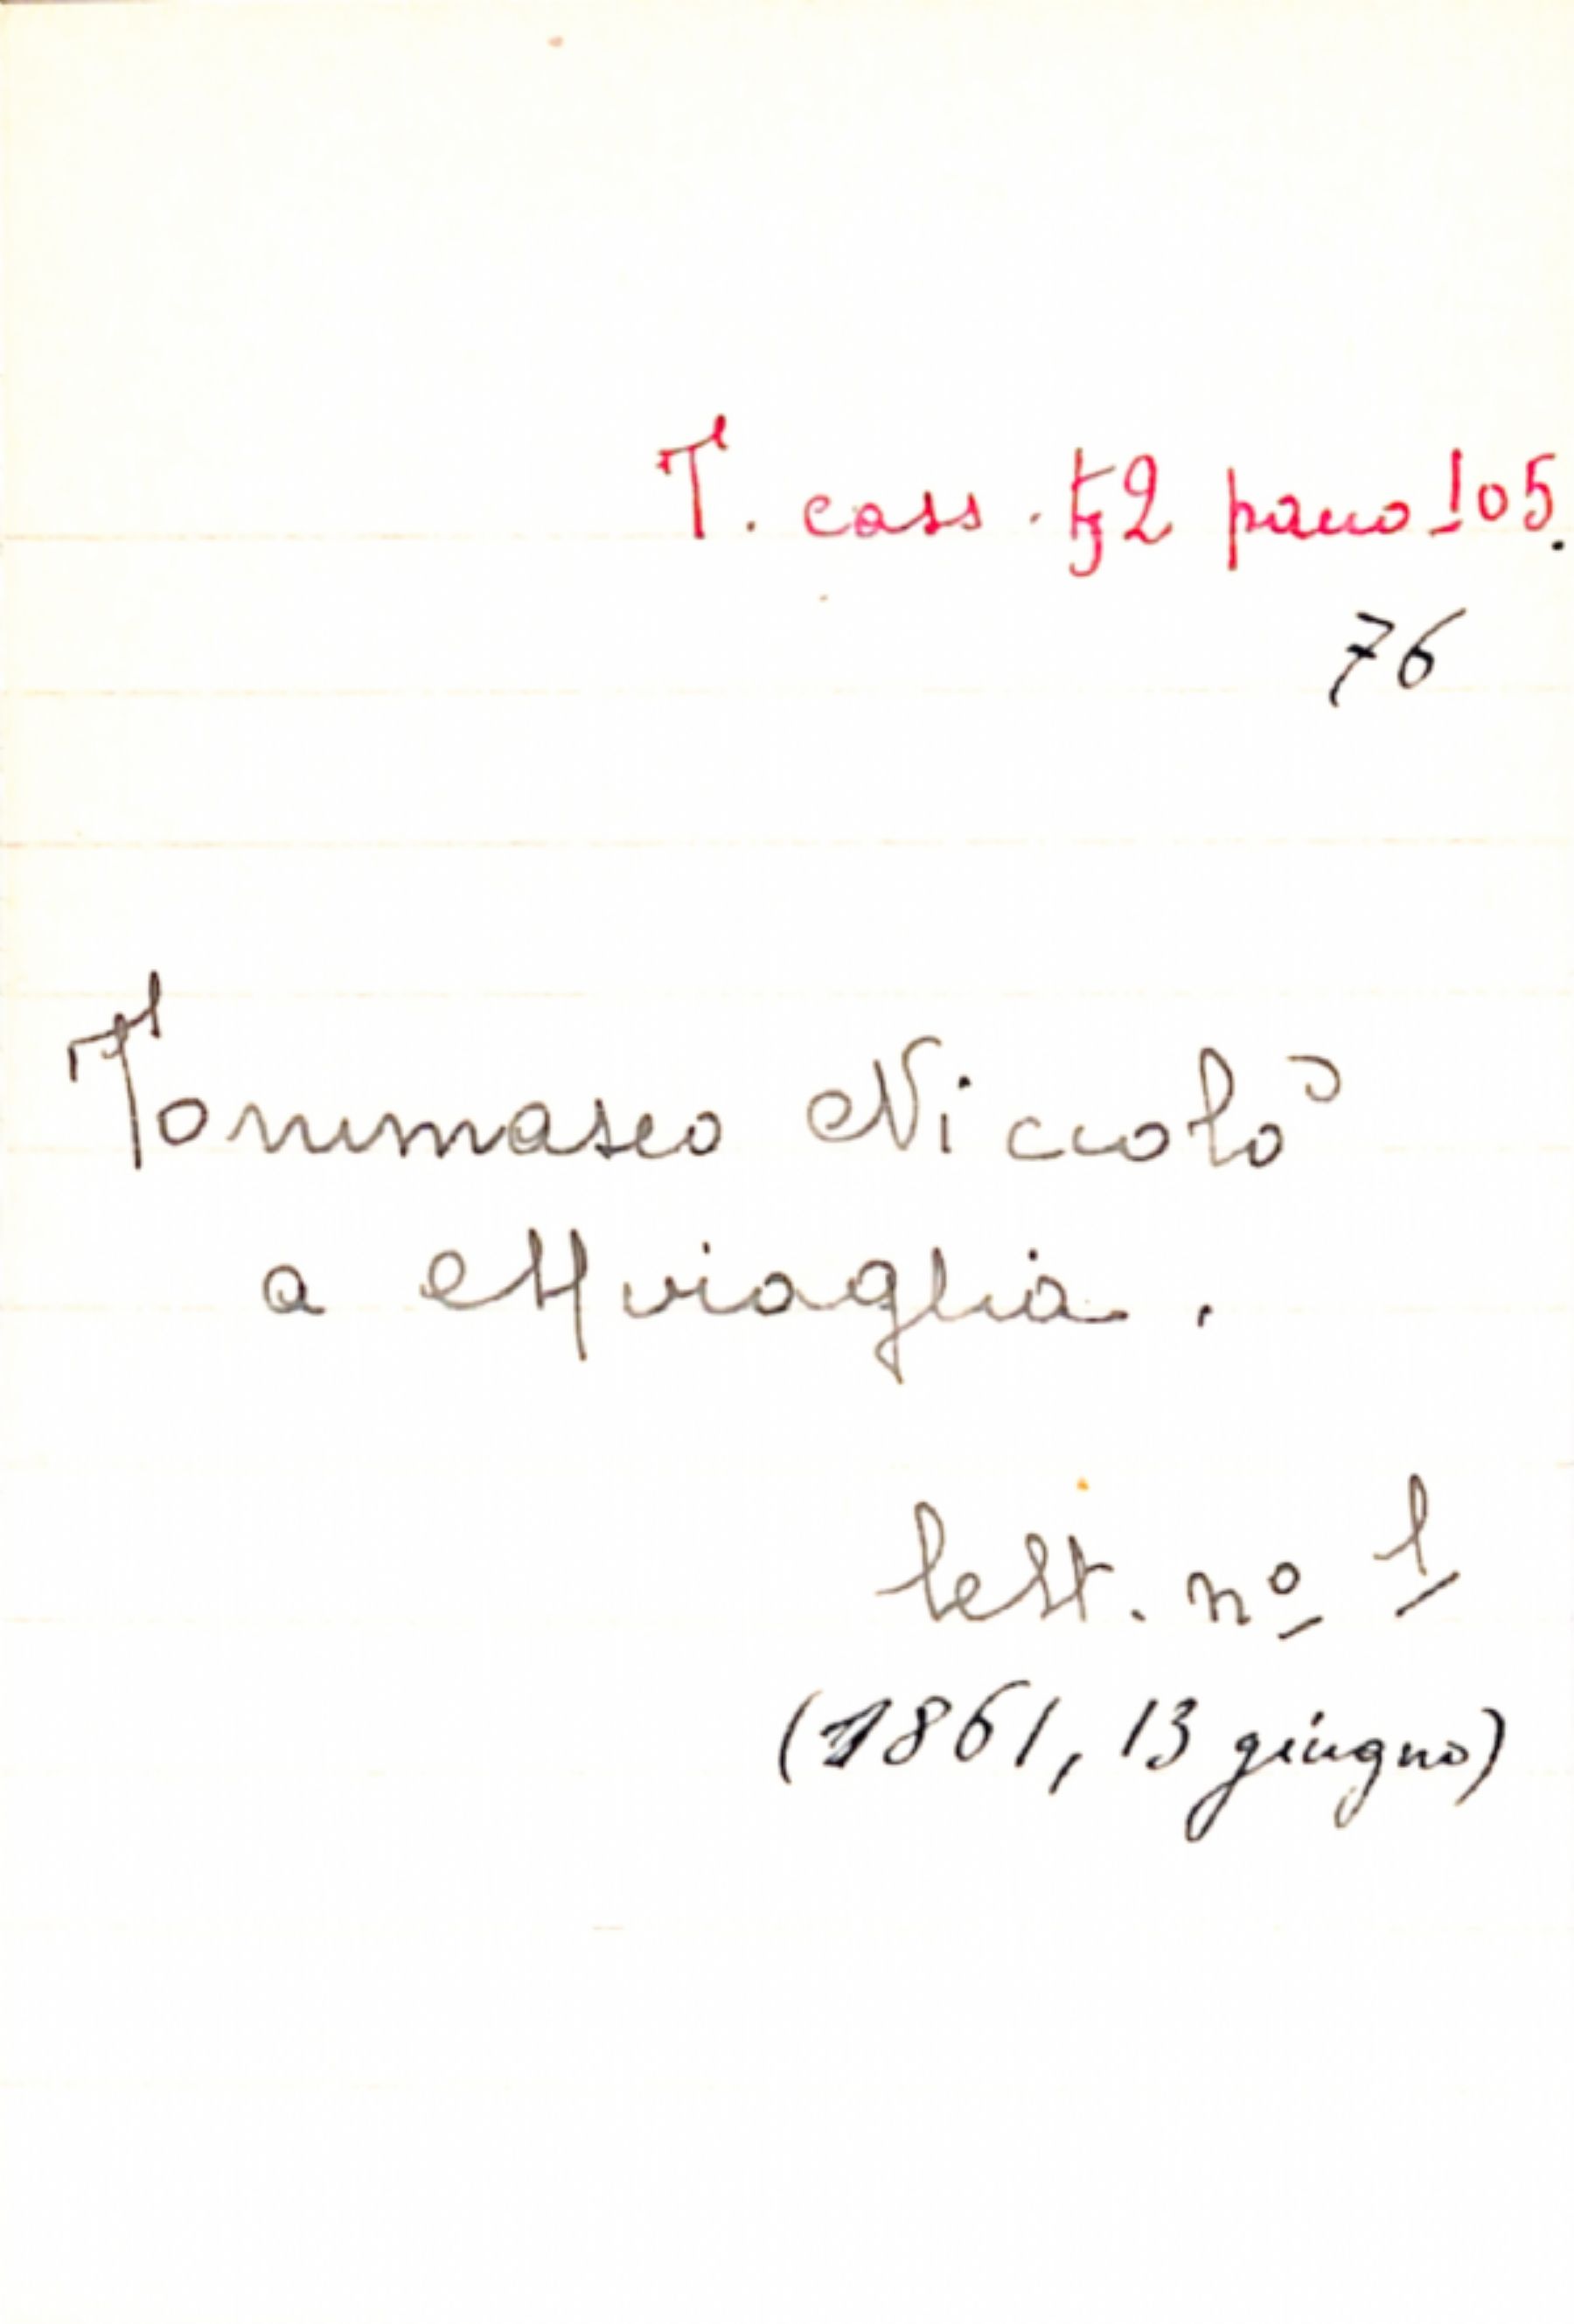 T. cass. 52 pacco 105.
76
Tommaseo Niccolò
a Muiaglia.
lett. nº 1
(1861, 13 giugno)